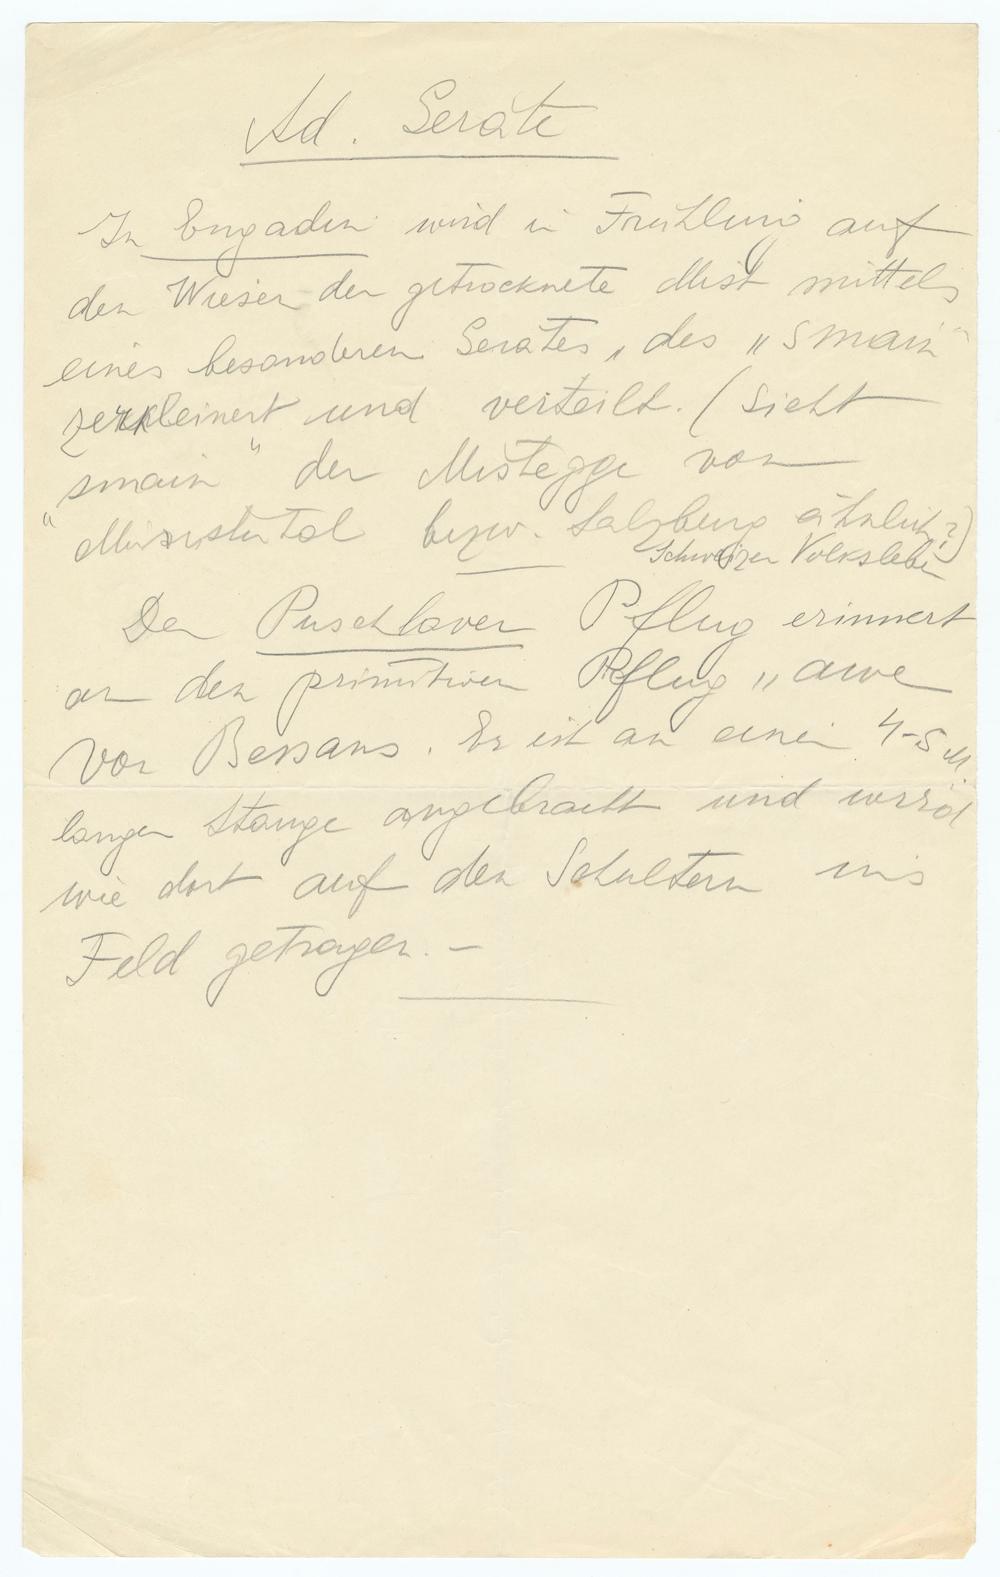 Ad. Geräte
In Engadin wird in Frühling auf
den Wiesen der getrocknete Mist mittels
eines besonderen Gerätes, des „smain"
zerkleinert und verteilt. (Sieht
"smain" der Mistegge von
bezw. Salzburg ähnlich?)
Schweizer Volksleben
Der Puschlaver Pflug erinnert
an den primitiven Pflug „arve
von Bessans. Er ist an einen 4-5 M.
langen Stange angebracht und wird
wie dort auf den Schultern ins
Feld getragen. –